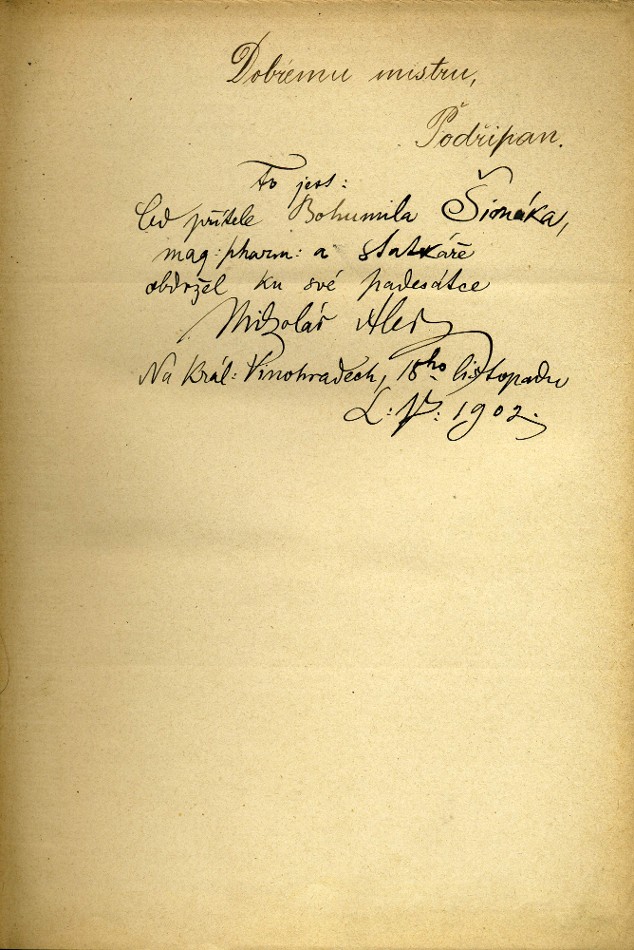 Dobrému mistru,
Podřipan.
To jest:
Od přítele Bohumila Šimáka,
mag: pharm: a statkáře
obdržel ku své padesátce
Mikoláš Aleš
Na Král: Vinohradech, 18ho listopadu
L: P: 1902.